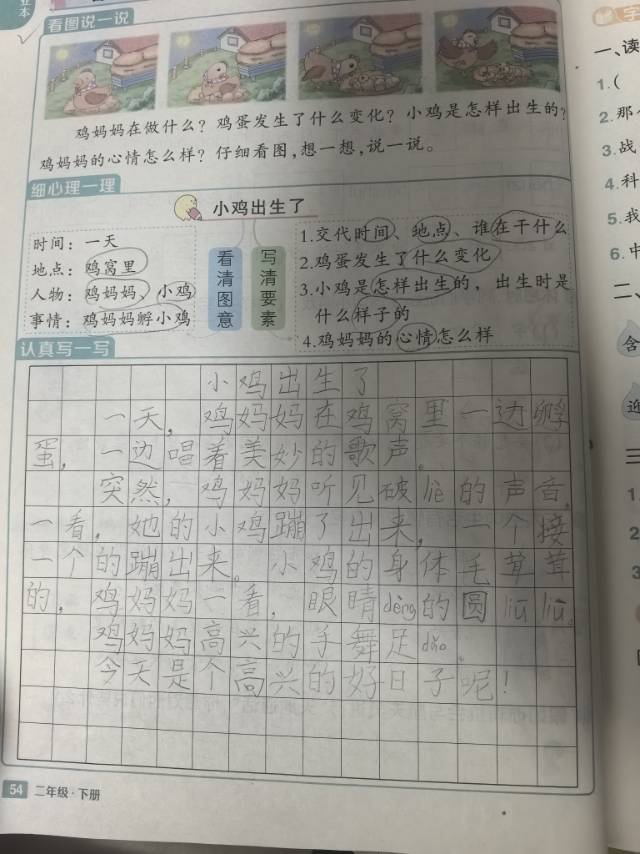 看图说一说
鸡妈妈在做什么？鸡蛋发生了什么变化？小鸡是怎样出生的？
鸡妈妈的心情怎么样？仔细看图，想一想，说一说。
细心理一理
小鸡出生了
时间：一天
地点：鸡窝里
人物：鸡妈妈、小鸡
事情：鸡妈妈孵小鸡
看清图意
写清要素
1.交代时间、地点、谁在干什么
2.鸡蛋发生了什么变化
3.小鸡是怎样出生的，出生时是
什么样子的
4.鸡妈妈的心情怎么样
认真写一写
小鸡出生了
一天，鸡妈妈在鸡窝里一边孵
蛋，一边唱着美妙的歌声。
突然，鸡妈妈听见破liè的声音，
一看，她的小鸡蹦了出来，一个接
一个的蹦出来。小鸡的身体毛茸茸
的，鸡妈妈一看，眼睛dèng的圆liū liū。
鸡妈妈高兴的手舞足dǎo。
今天是个高兴的好日子呢！
54 二年级·下册
一、读
1.(
2.那
3.战
4.科
5.我
6.中
二、
含
近
三
1
2
3